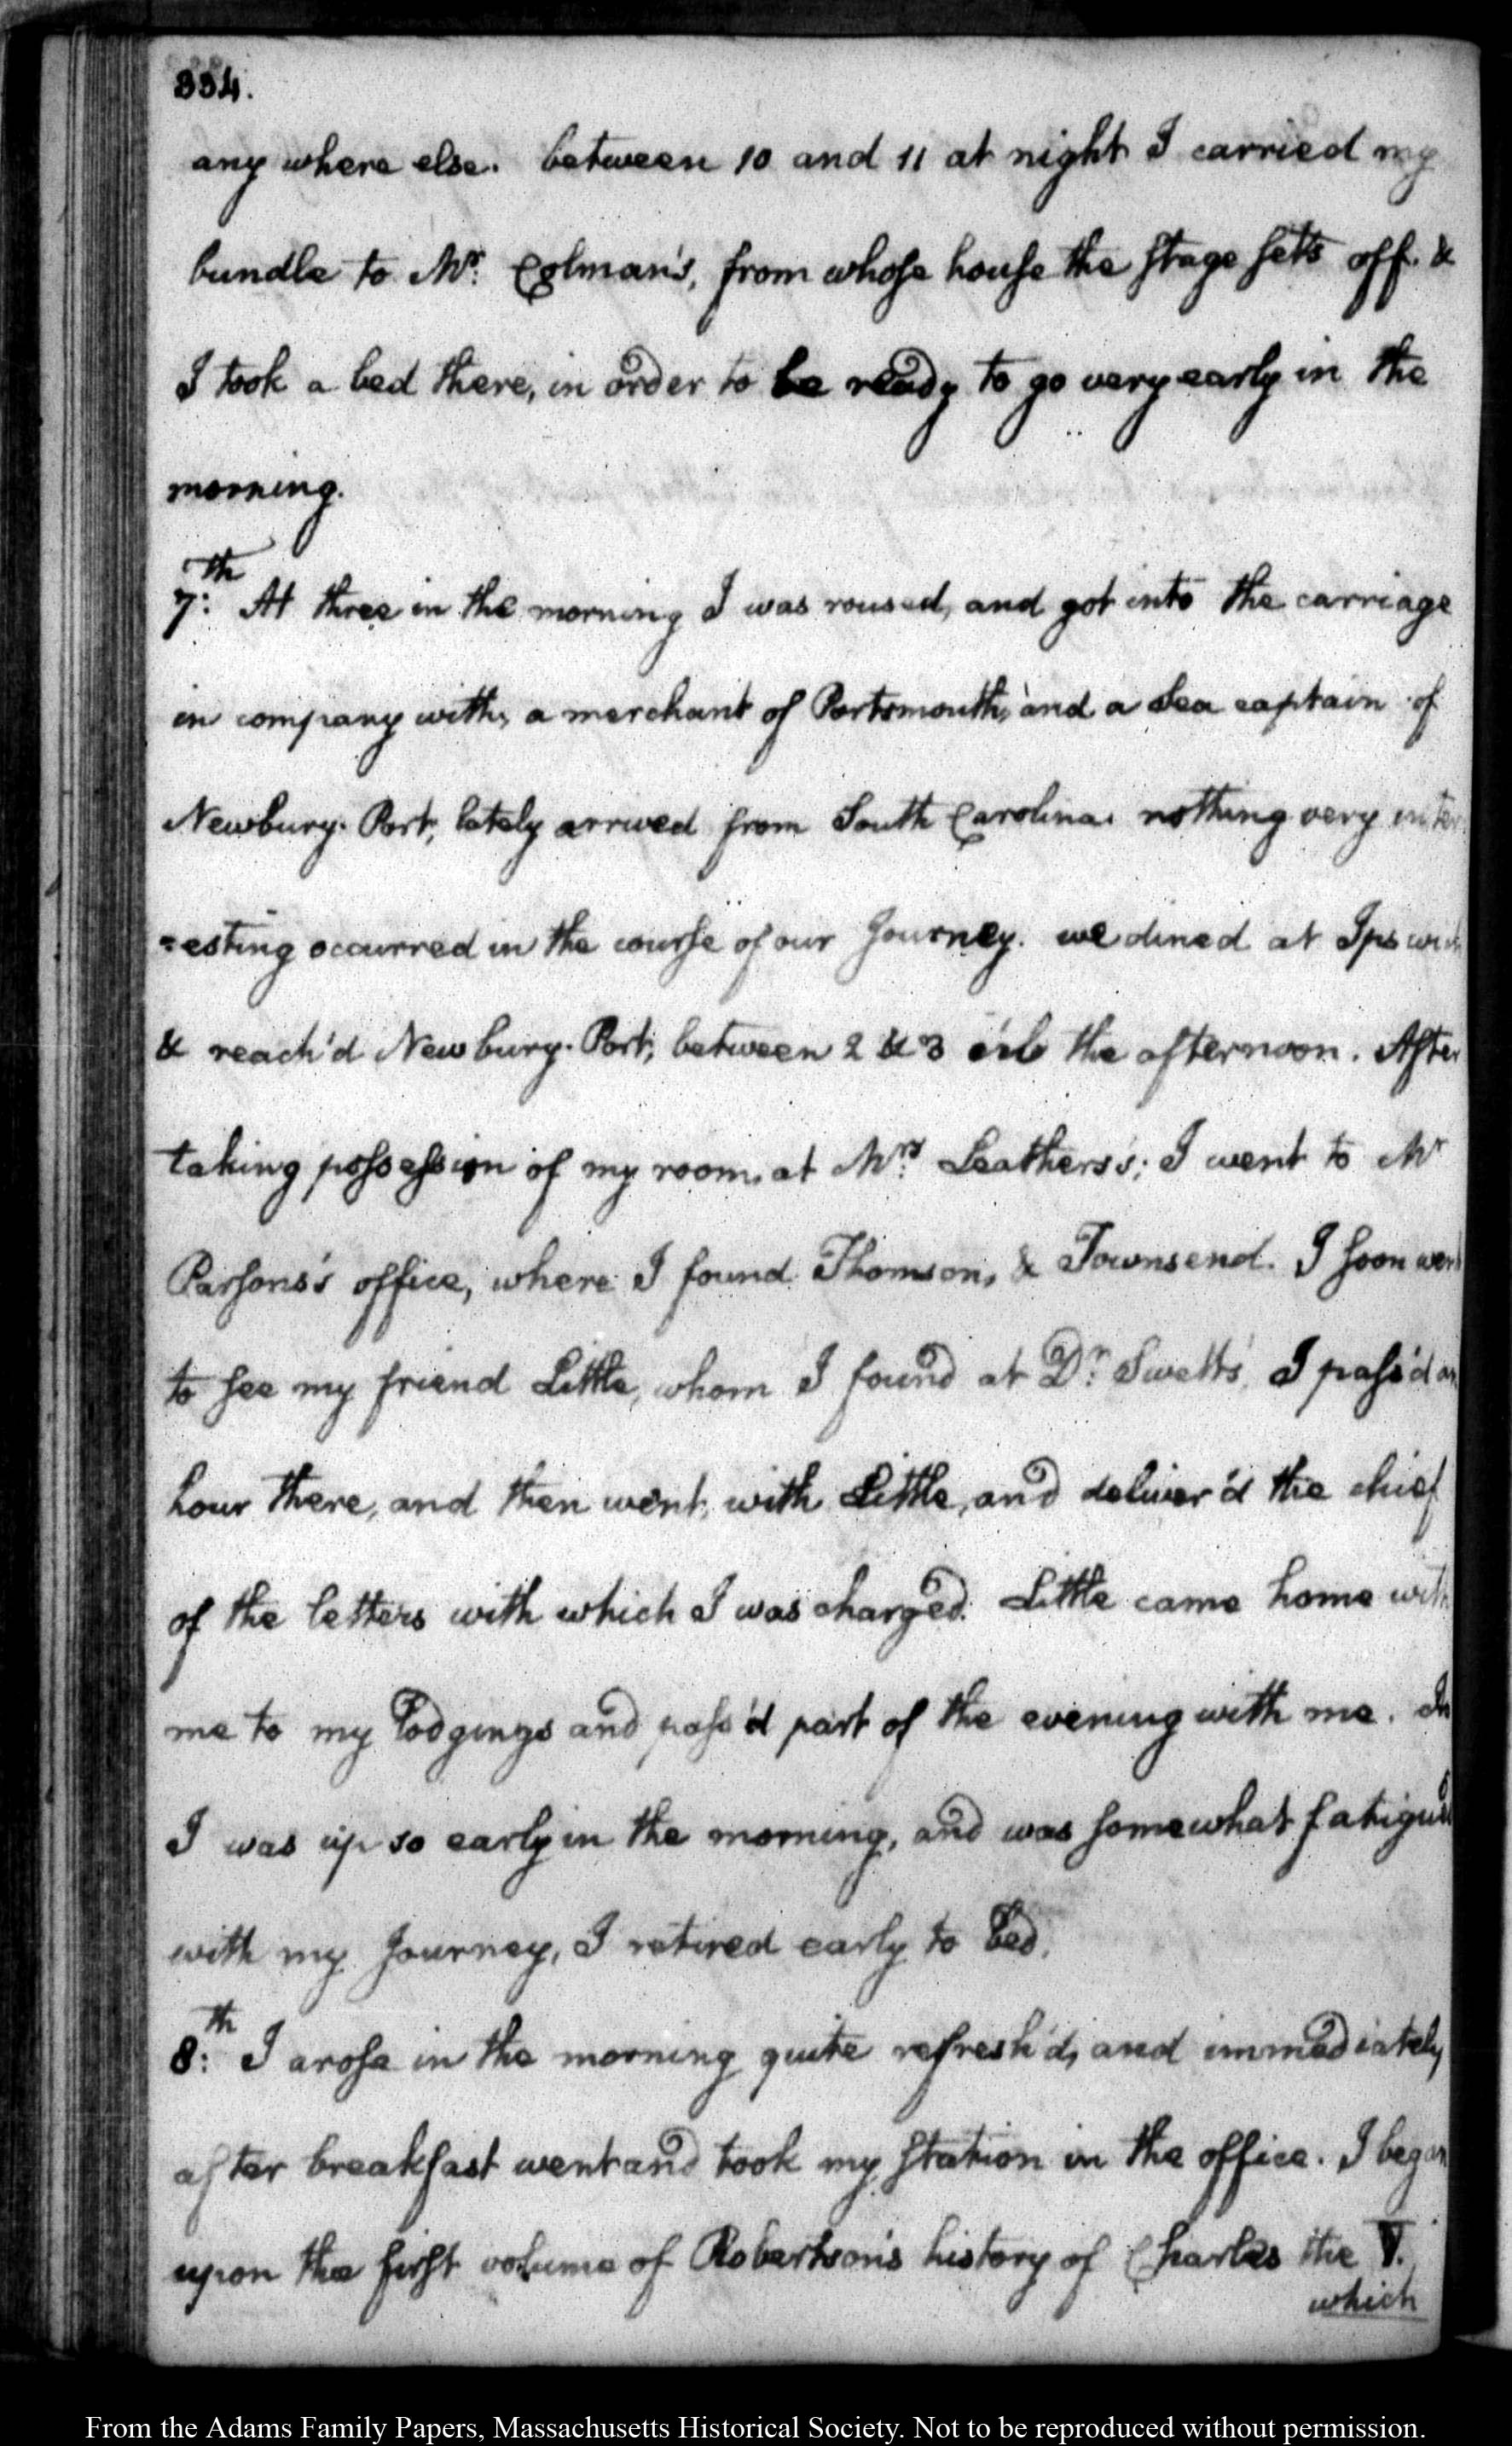 334.
any where else. between 10 and 11 at night I carried my
bundle to Mr: Colman's, from whose house the stage sets off. &
I took a bed there, in order to be ready to go very early in the
morning.
7:th At three in the morning I was roused, and got into the carriage
in company with, a merchant of Portsmouth, and a Sea captain of
Newbury-Port, lately arrived from South Carolina. nothing very inter
=esting occurred in the course of our Journey. we dined at Ipswich
& reach'd Newbury-Port, between 2 & 3 the afternoon. After
taking possession of my room, at Mrs: Leathers's; I went to Mr
Parsons's office, where I found Thomson, & Townsend. I soon went
to see my friend Little, whom I found at Dr: Swett's. I pass'd an
hour there, and then went, with Little, and deliver'd the chief
of the letters with which I was charged. Little came home with
me to my lodgings and pass'd part of the evening with me. As
I was up so early in the morning, and was somewhat fatigued
with my Journey, I retired early to bed.
8:th I arose in the morning quite refresh'd, and immediately
after breakfast went and took my station in the office. I began
upon the first volume of Robertson's history of Charles the V.
which
From the Adams Family Papers, Massachusetts Historical Society. Not to be reproduced without permission.